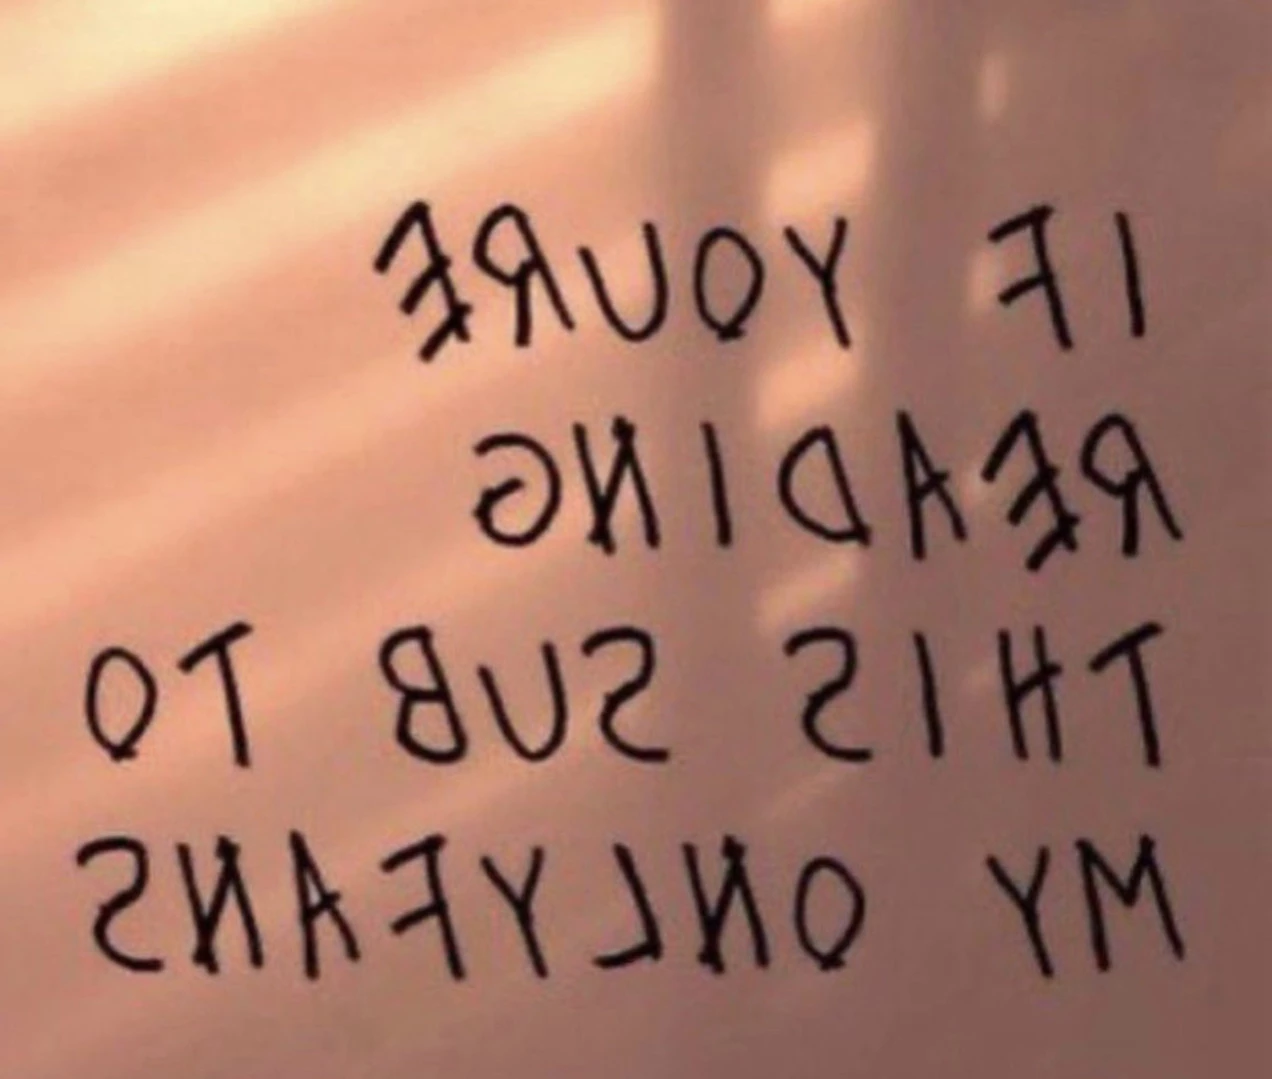 IF YOURE
READING
THIS SUB TO
MY ONLYFANS